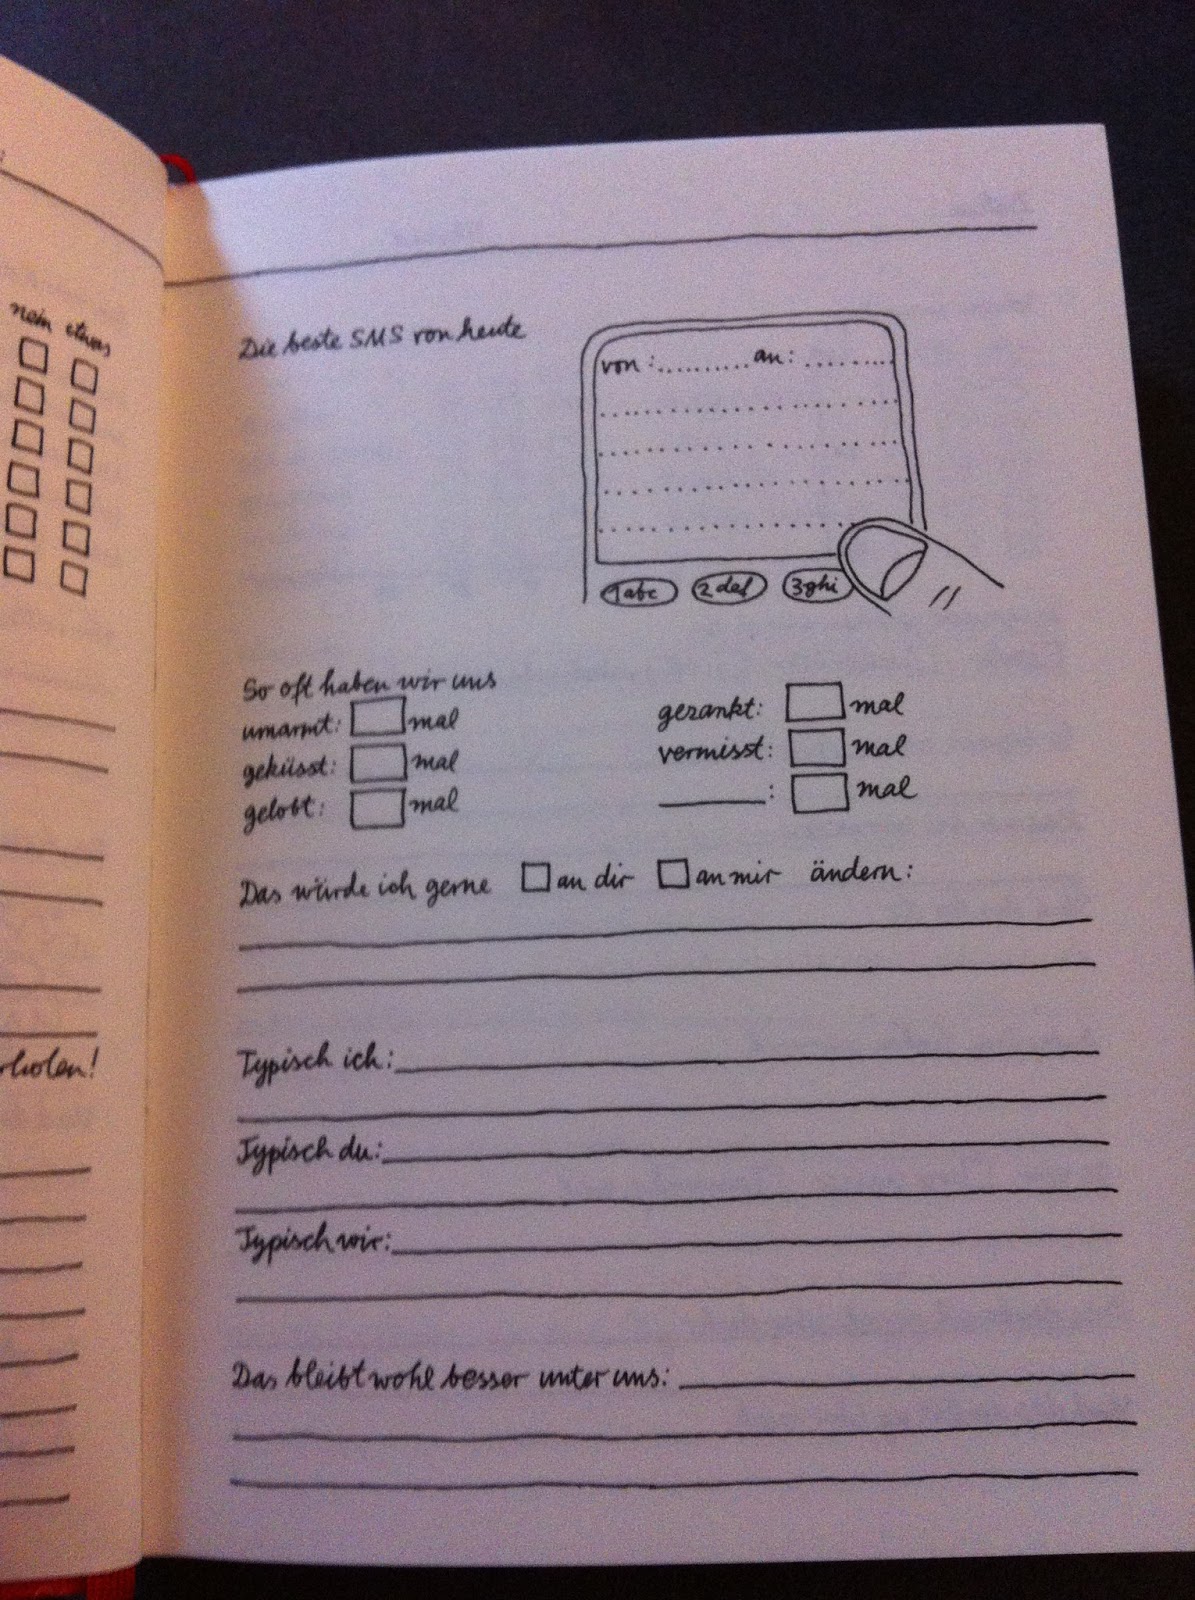 nein etwas
rholen!
Die beste SMS von heute
von: .......... an: .........
1abc 2def 3ghi
So oft haben wir uns
umarmt: mal gezankt: mal
geküsst: mal vermisst: mal
gelobt: mal ________: mal
Das würde ich gerne an dir an mir ändern:
Typisch ich:
Typisch du:
Typisch wir:
Das bleibt wohl besser unter uns: